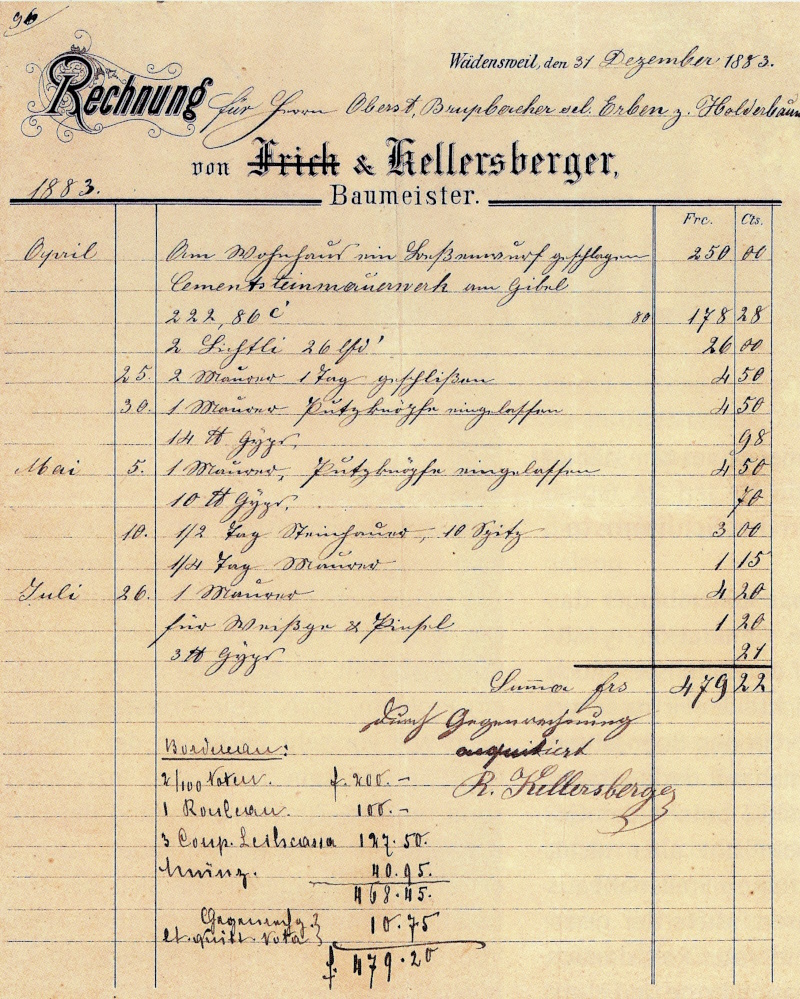 96
Wädensweil, den 31 Dezember 1883.
Rechnung für Herrn Oberst, Brupbacher sel. Erben z. Holderbaum
von Frick & Kellersberger,
1883. Baumeister.
Frc. Cts.
April Am Wohnhaus ein Beßenwurf geschlagen 250 00
Cementsteinmauerwerk am Gibel
222,86 c' 80 178 28
2 Lichtli 26 lfd' 26 00
25. 2 Maurer 1 Tag geschlißen 4 50
30. 1 Maurer Putzknöpfe eingelassen 4 50
14 ℔ Gyps. 98
Mai 5. 1 Maurer, Putzknöpfe eingelassen 4 50
10 ℔ Gyps. 70
10. 1/2 Tag Steinhauer, 10 Spitz 3 00
1/4 Tag Maurer 1 15
Juli 26. 1 Maurer 4 20
für Weißge & Pinsel 1 20
3 ℔ Gyps 21
Summa frs 479 22
Durch Gegenrechnung
acquitiert
R. Kellersberger
Bordereau:
2/100 Noten. f. 200.-
1 Rouleau. 100.-
3 Coup. Leihcassa 127.50.
Münz. 40.95.
468.45.
Gegenrechg. 10.75
lt. quitt. Nota
f. 479.20